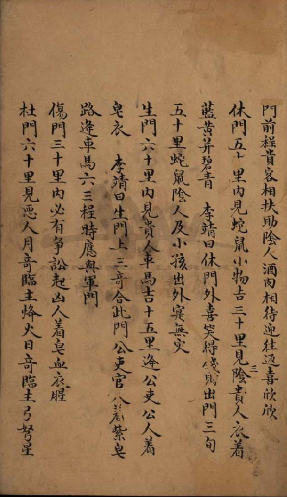 門前程貴客相扶助陰人酒肉相待迎往返喜欣欣
休門五十里內見蛇鼠小物吉三十里見陰貴人衣着
藍黃并碧青　李靖曰休門外喜笑得錢財出門三旬
五十里蛇鼠陰人及小孩出外竟無灾
生門六十里內見貴人車馬吉十五里逢公吏公人着
皂衣　李靖曰生門上三奇合此門公吏官人着紫皂
路逢車馬六三程時應與軍門
傷門三十里內必有爭訟起凶人着皂血衣腥
杜門六十里見惡人月奇臨主烽火日奇臨主弓弩星